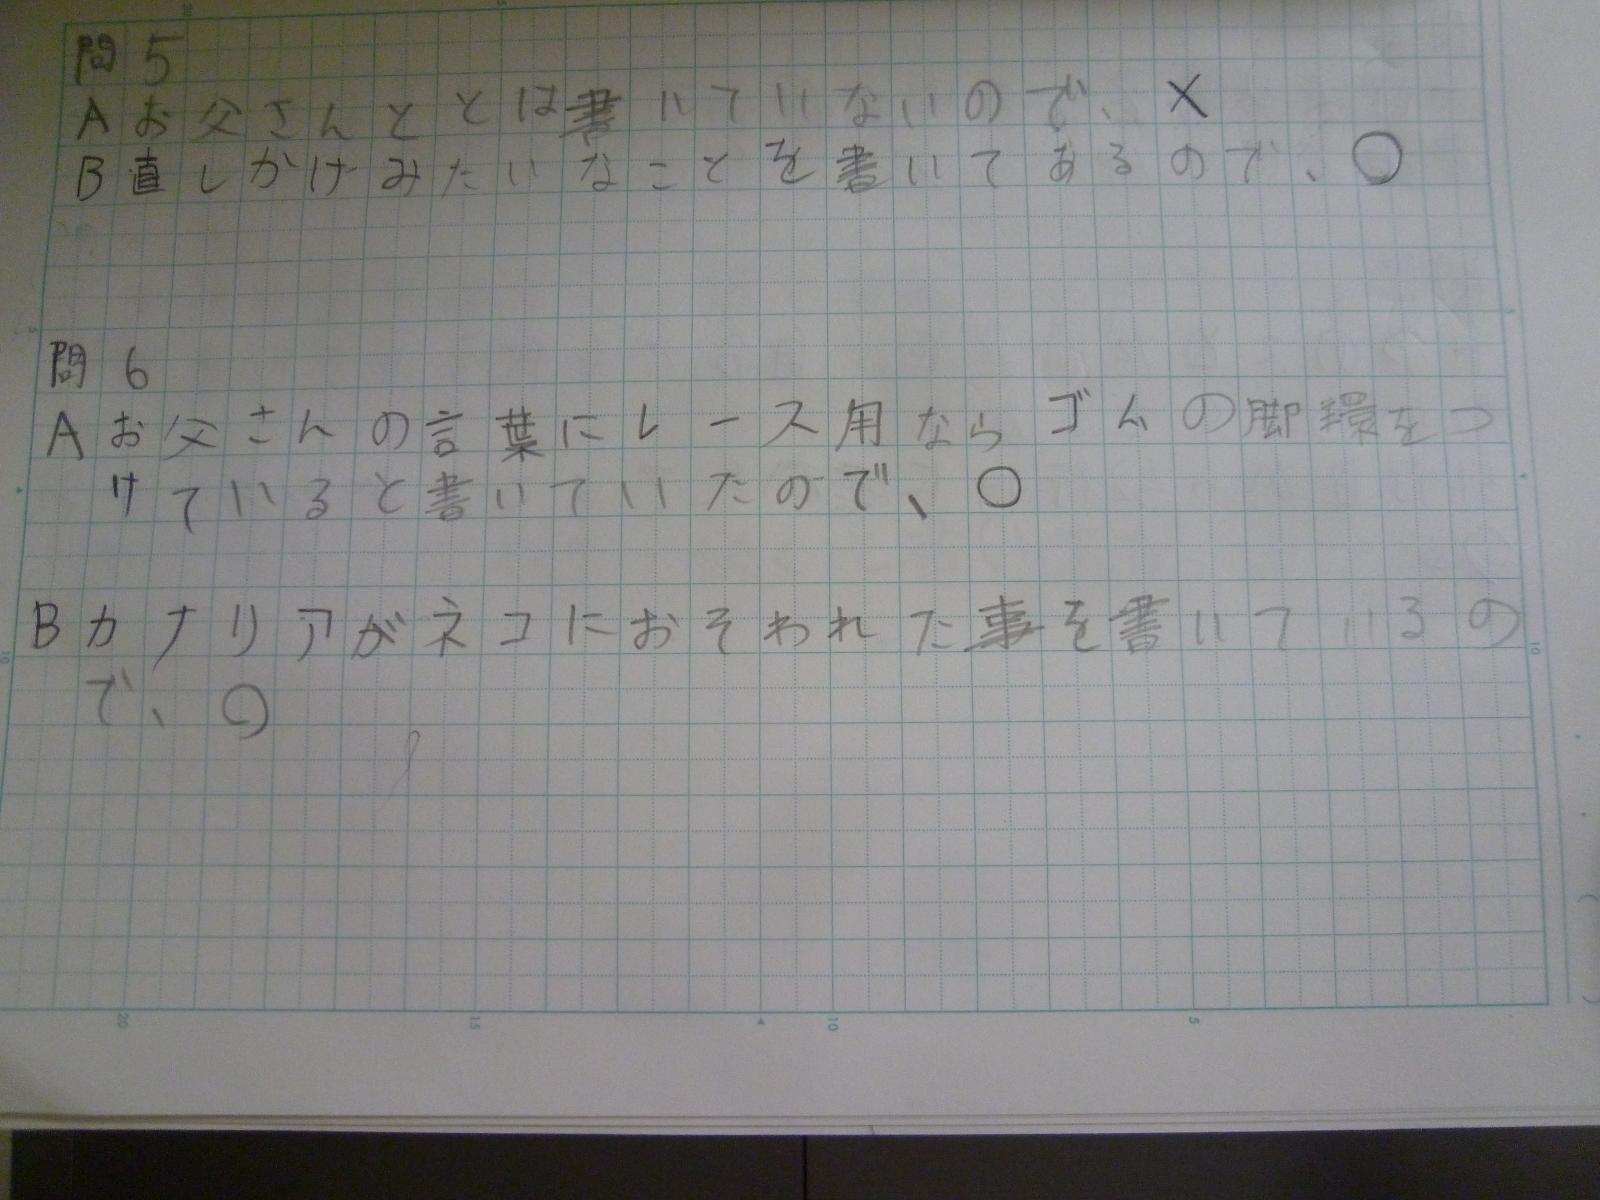 問5
Aお父さんととは書いていないので、×
B直しかけみたいなことを書いてあるので、○
問6
Aお父さんの言葉にレース用ならゴムの脚環をつ
けていると書いていたので、○
Bカナリアがネコにおそわれた事を書いているの
で、○
20
15
10
5